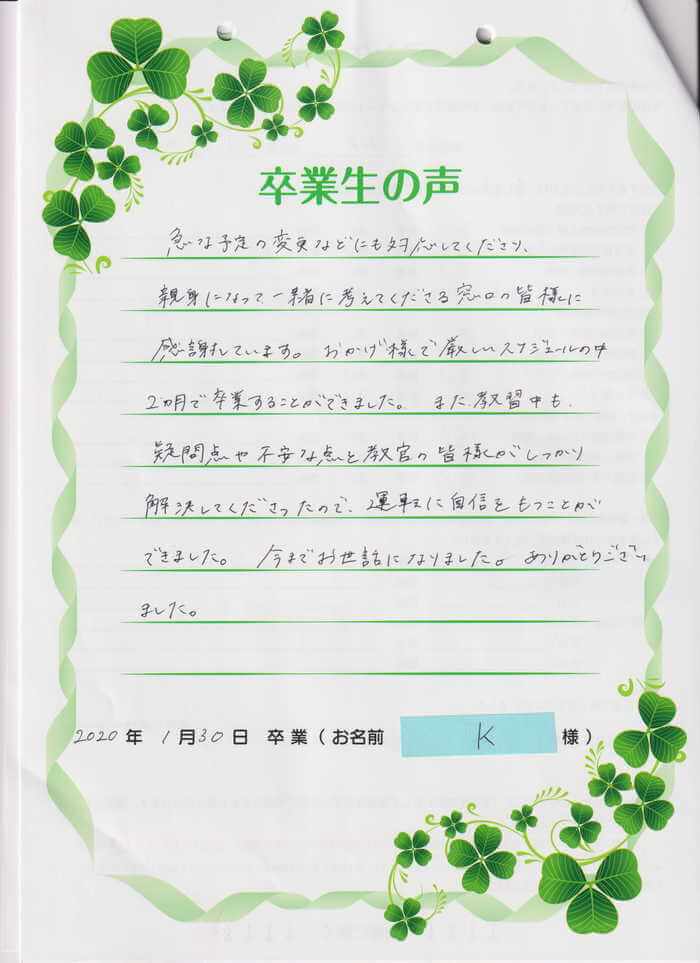 卒業生の声
急な予定の変更などにも対応してくださり、
親身になって一緒に考えてくださる窓口の皆様に
感謝しています。おかげ様で厳しいスケジュールの中
2ヵ月で卒業することができました。また、教習中も、
疑問点や不安な点を教官の皆様がしっかり
解決してくださったので、運転に自信をもつことが
できました。今までお世話になりました。ありがとうござい
ました。
2020年 1月30日 卒業(お名前 K 様)